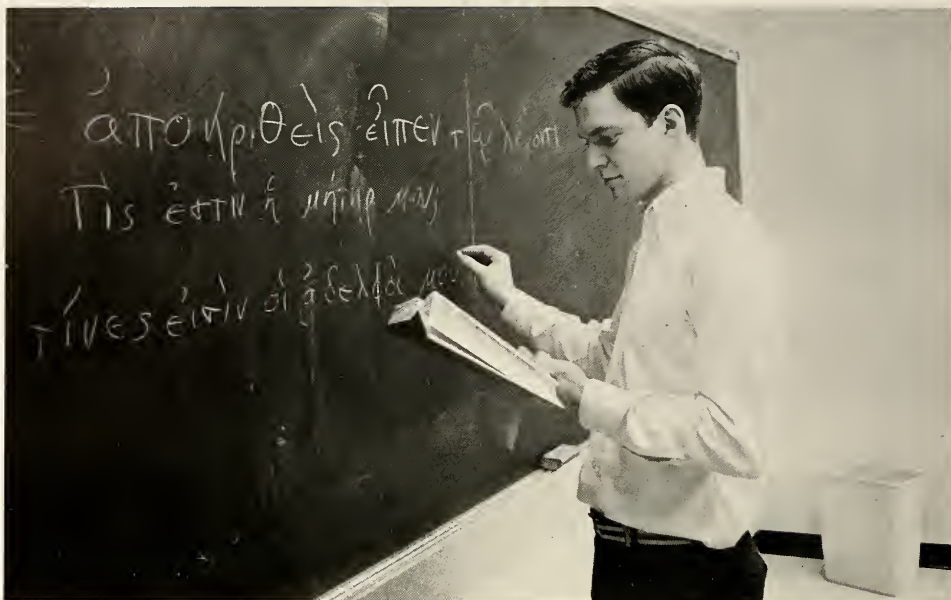 ἀποκριθεὶς εἶπεν τῷ λέγοντι
Τίς ἐστιν ἡ μήτηρ μου;
τίνες εἰσὶν οἱ ἀδελφοί μου